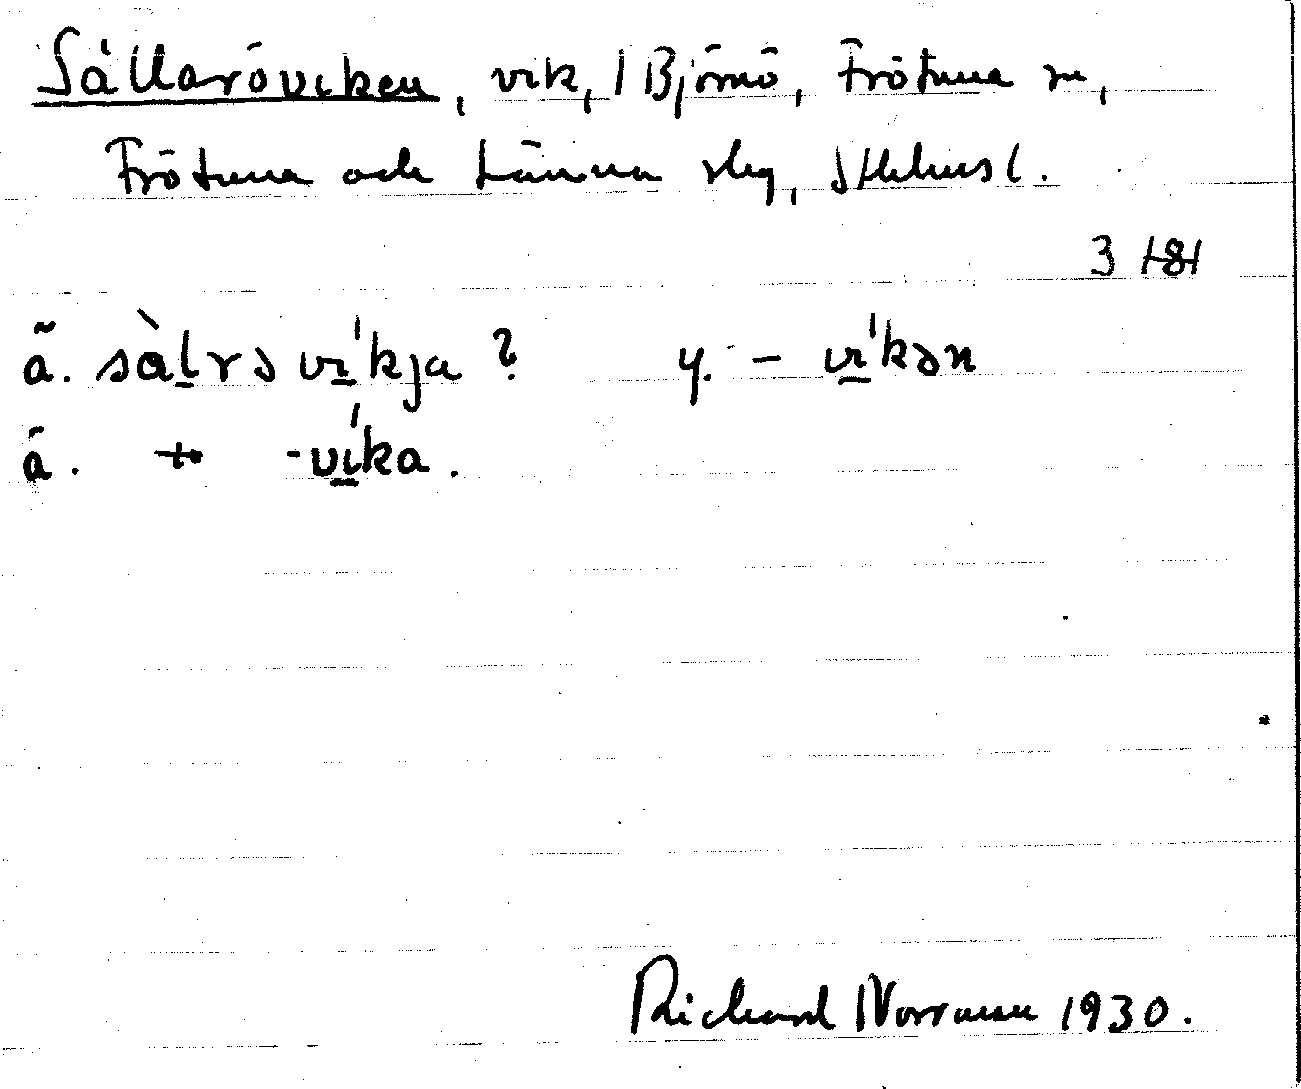 Sållaröviken, vik, Björnö, Frötuna sn,
Frötuna och Länna slg, Sthlms l.
3
ä. sàlrə víkja ? y. – víkən
ä. -víka.
Richard Norrman 1930.